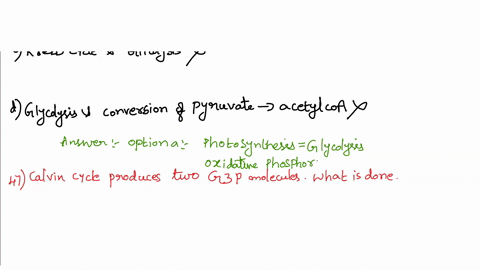 d) Glycolysis & conversion of pyruvate → acetylcoA X
Answer:- option a:- Photosynthesis = Glycolysis
oxidative phosphor.
47) Calvin cycle produces two G3P molecules. What is done.